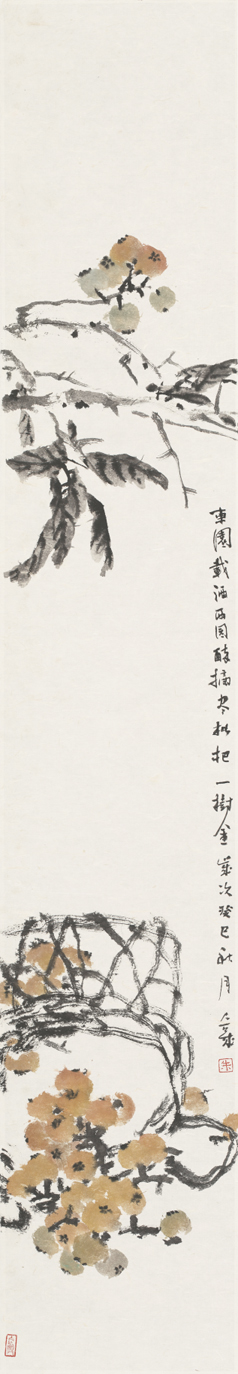 東園載酒西園醉摘尽枇杷一樹金歲次癸巳秋月